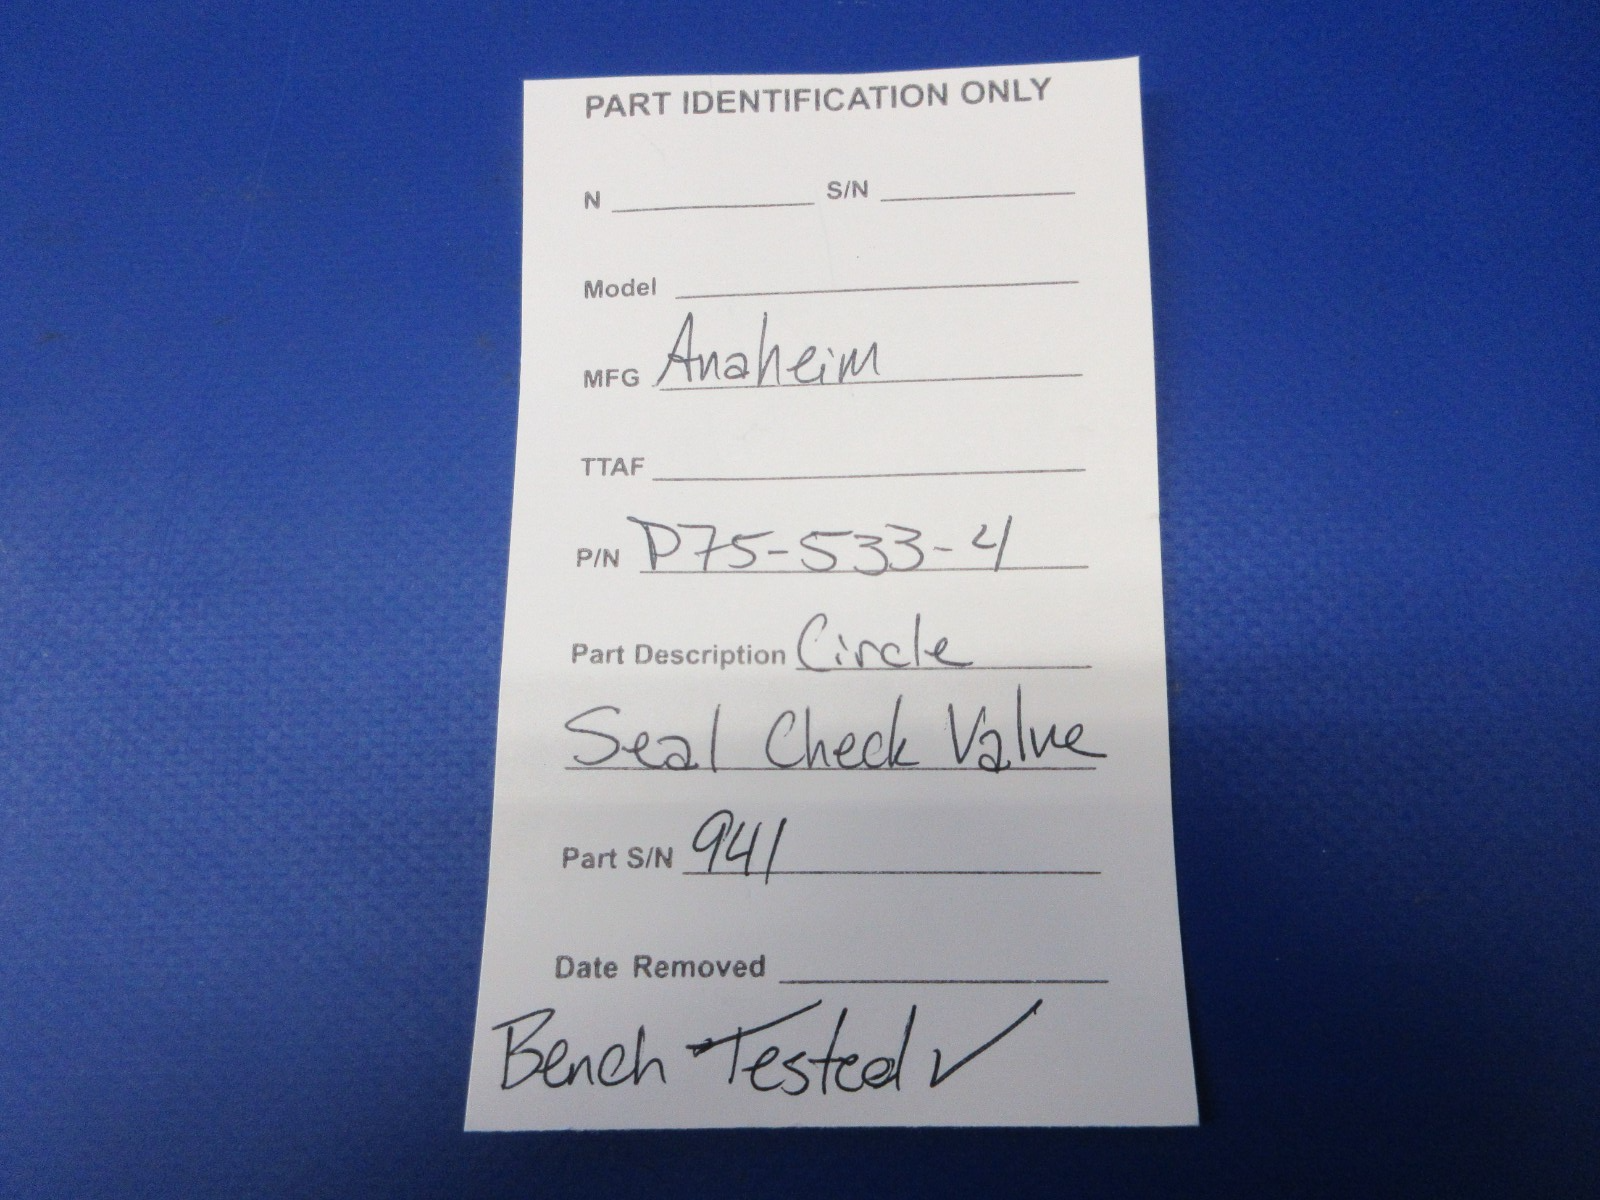 PART IDENTIFICATION ONLY
N S/N
Model
MFG Anaheim
TTAF
P/N P75-533-4
Part Description Circle
Seal Check Valve
Part S/N 941
Date Removed
Bench Tested ✓